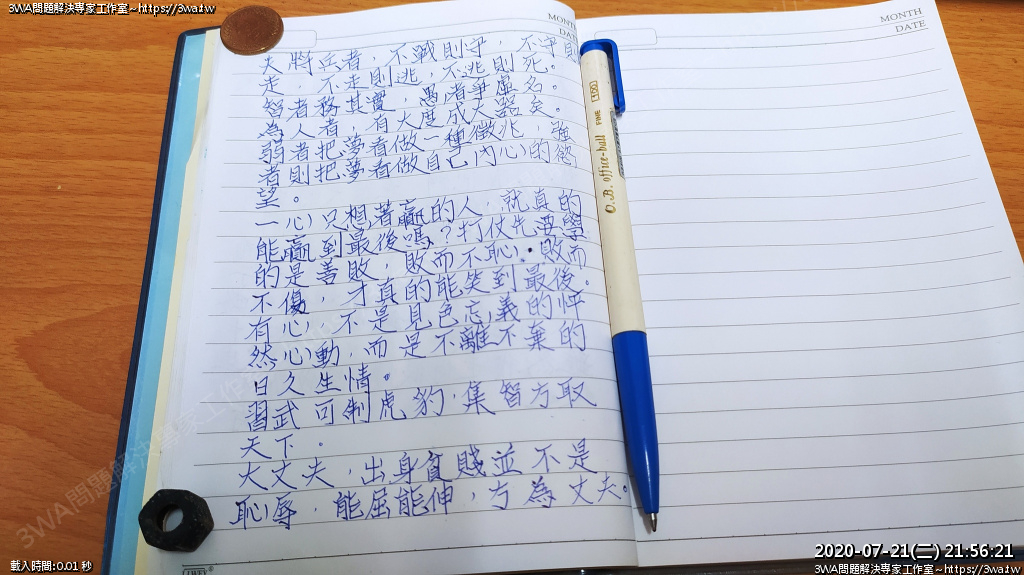 3WA問題解決專家工作室~https://3wa.tw
3WA問題解決專家工作室~https://3wa.tw
MONTH
DATE
MONTH
DATE
夫將兵者，不戰則守，不守則
走，不走則逃，不逃則死。
智者務其實，愚者爭虛名。
為人者，有大度成大器矣。
弱者把夢看做一種徵兆，強
者則把夢看做自己內心的慾
望。
一心只想著贏的人，就真的
能贏到最後嗎？打仗先要學
的是善敗，敗而不恥，敗而
不傷，才真的能笑到最後。
有心，不是見色忘義的怦
然心動，而是不離不棄的
日久生情。
習武可制虎豹，集智方取
天下。
大丈夫，出身貧賤並不是
恥辱，能屈能伸，方為丈夫。
O.B. office-ball FINE 100
3WA問題解決專家工作室
3WA問題解決專家工作室
載入時間:0.01 秒
2020-07-21(二) 21:56:21
3WA問題解決專家工作室~https://3wa.tw